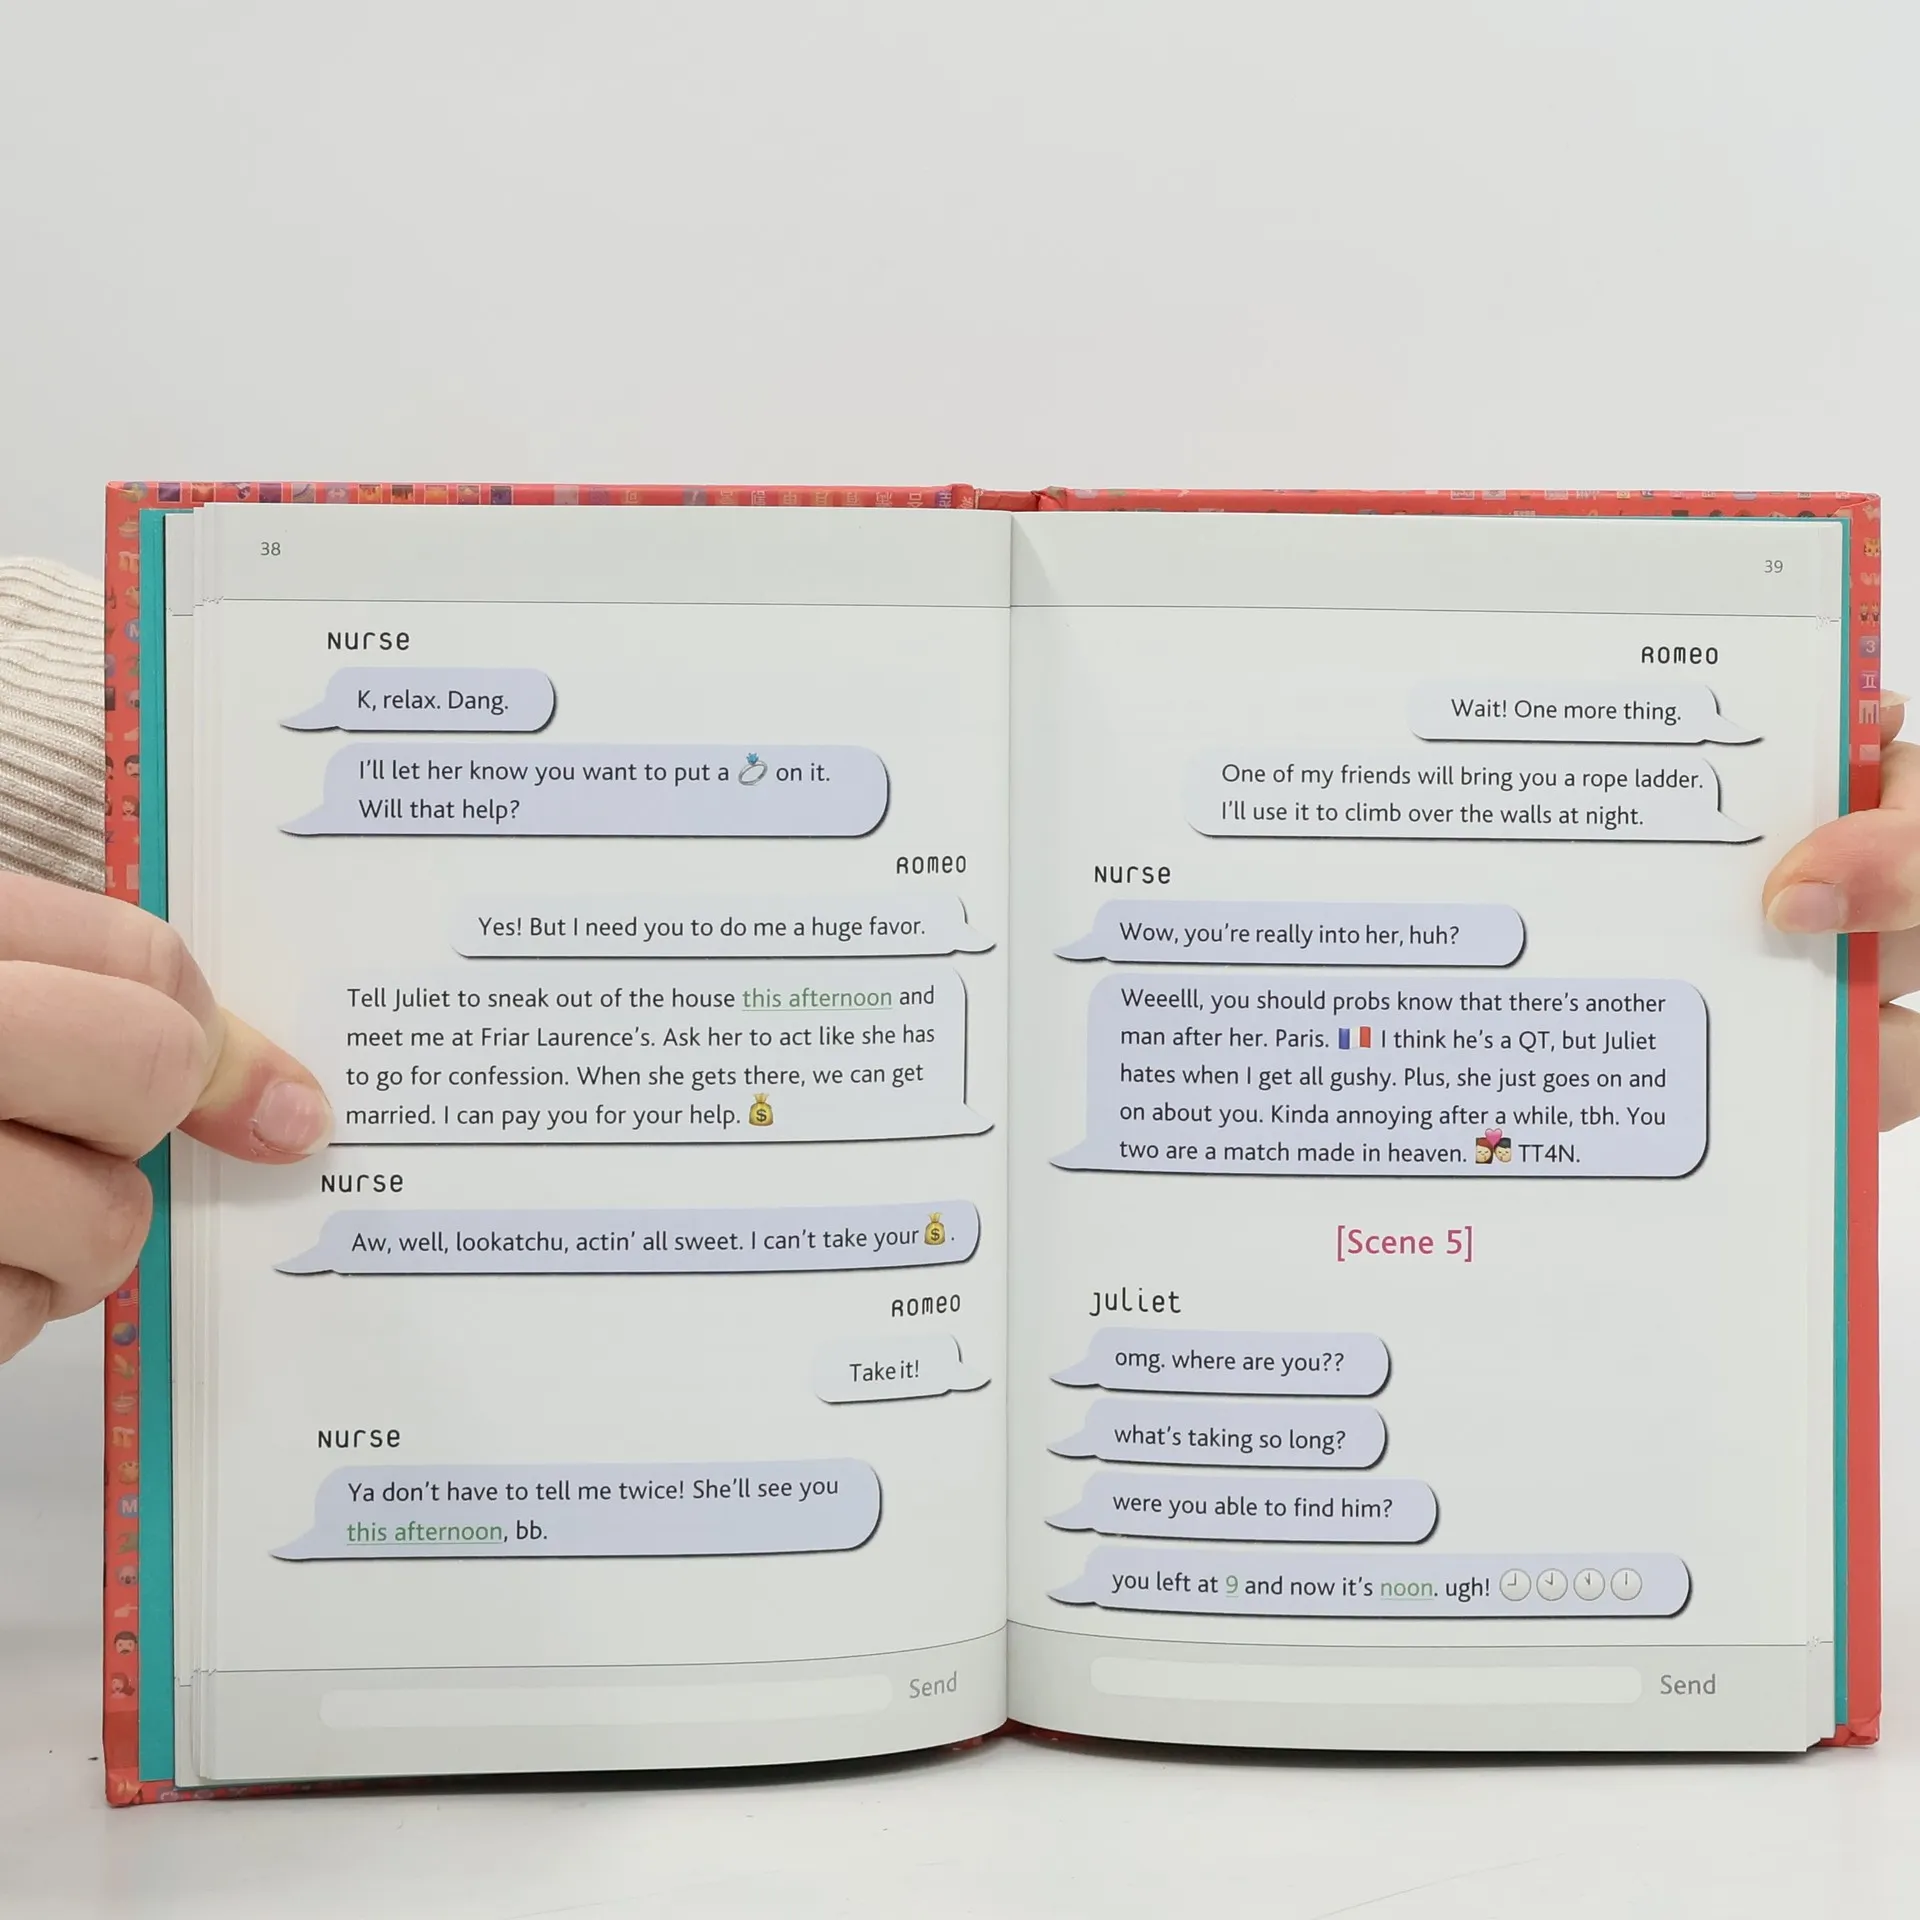 38
Nurse
K, relax. Dang.
I'll let her know you want to put a 💍 on it.
Will that help?
Romeo
Yes! But I need you to do me a huge favor.
Tell Juliet to sneak out of the house this afternoon and
meet me at Friar Laurence's. Ask her to act like she has
to go for confession. When she gets there, we can get
married. I can pay you for your help. 💰
Nurse
Aw, well, lookatchu, actin' all sweet. I can't take your 💰.
Romeo
Take it!
Nurse
Ya don't have to tell me twice! She'll see you
this afternoon, bb.
Send
39
Romeo
Wait! One more thing.
One of my friends will bring you a rope ladder.
I'll use it to climb over the walls at night.
Nurse
Wow, you're really into her, huh?
Weeelll, you should probs know that there's another
man after her. Paris. 🇫🇷 I think he's a QT, but Juliet
hates when I get all gushy. Plus, she just goes on and
on about you. Kinda annoying after a while, tbh. You
two are a match made in heaven. 💑 TT4N.
[Scene 5]
Juliet
omg. where are you??
what's taking so long?
were you able to find him?
you left at 9 and now it's noon. ugh! 🕘🕙🕚🕛
Send